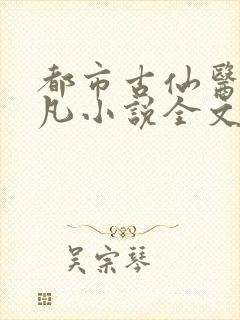 都市古仙醫
凡小說全文
吴宗琴